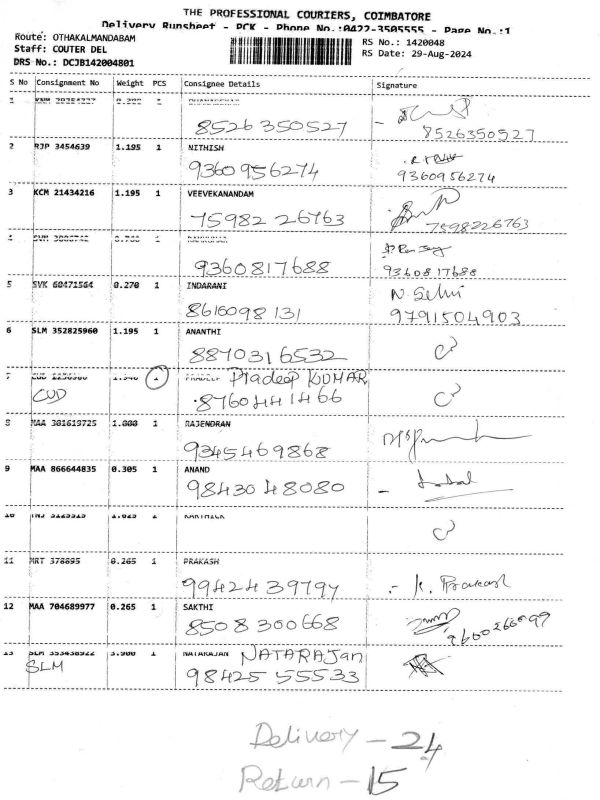 THE PROFESSIONAL COURIERS, COIMBATORE
Delivery Runsheet - PCK - Phone No.:0422-3505555 - Page No.:1
Route: OTHAKALMANDABAM
RS No.: 1420048
Staff: COUTER DEL
RS Date: 29-Aug-2024
DRS No.: DCJB142004801
S No Consignment No Weight PCS Consignee Details Signature
1 1
8526350527 8526350527
2 RJP 3454639 1.195 1 NITHISH
9360956274 9360956274
3 KCM 21434216 1.195 1 VEEVEKANANDAM
75982 26763 7598226763
4 1
9360817688 9360817688
5 SVK 60471564 0.270 1 INDARANI N. Selvi
8616098131 9791504903
6 SLM 352825960 1.195 1 ANANTHI
8870316532
7 1 PRADEEP Pradeep KUMAR
CUD 8760441466
8 MAA 301619725 1.000 1 RAJENDRAN
9345469868
9 MAA 866644835 0.305 1 ANAND
9843048080
10 1 KARTHICK
11 MRT 378895 0.265 1 PRAKASH
9942439797 K. Prakash
12 MAA 704689977 0.265 1 SAKTHI
8508300668 9600266099
13 SLM 353438922 3.900 1 NATARAJAN NATARAJan
SLM 98425 55533
Delivery - 24
Return - 15